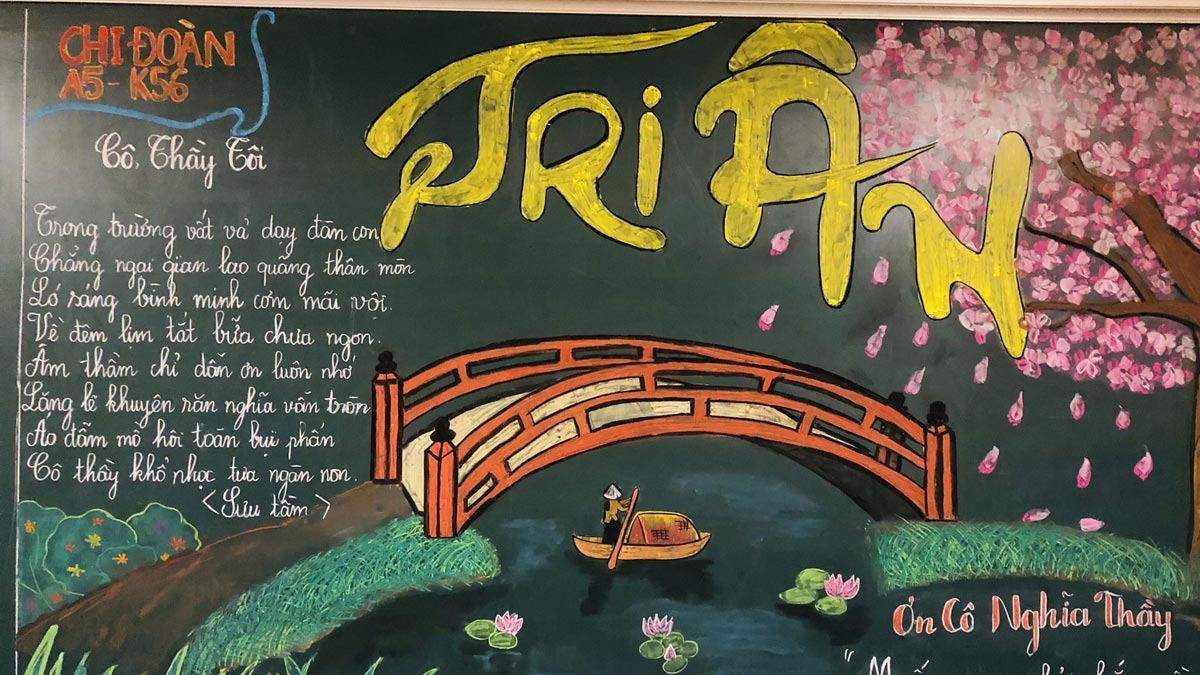 CHI ĐOÀN
A5 - K56
TRI ÂN
Cô, Thầy Tôi
Trong trường vất vả dạy đàn con
Chẳng ngại gian lao quãng thân mòn
Ló sáng bình minh cơm mãi vội.
Về đêm lịm tắt bữa chưa ngon.
Âm thầm chỉ dẫn ơn luôn nhớ
Lặng lẽ khuyên răn nghĩa vẫn tròn
Áo đẫm mồ hôi toàn bụi phấn
Cô thầy khổ nhọc tựa ngàn non.
<Sưu tầm>
Ơn Cô Nghĩa Thầy